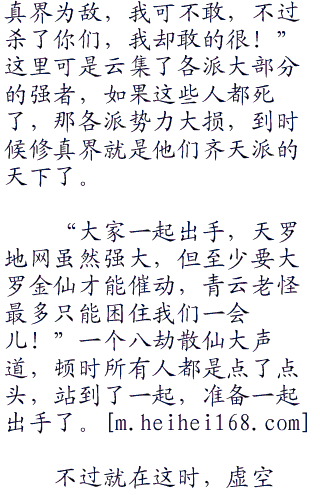 真界为敌，我可不敢，不过
杀了你们，我却敢的很！”
这里可是云集了各派大部分
的强者，如果这些人都死
了，那各派势力大损，到时
候修真界就是他们齐天派的
天下了。
“大家一起出手，天罗
地网虽然强大，但至少要大
罗金仙才能催动，青云老怪
最多只能困住我们一会
儿！”一个八劫散仙大声
道，顿时所有人都是点了点
头，站到了一起，准备一起
出手了。[m.heihei168.com]
不过就在这时，虚空